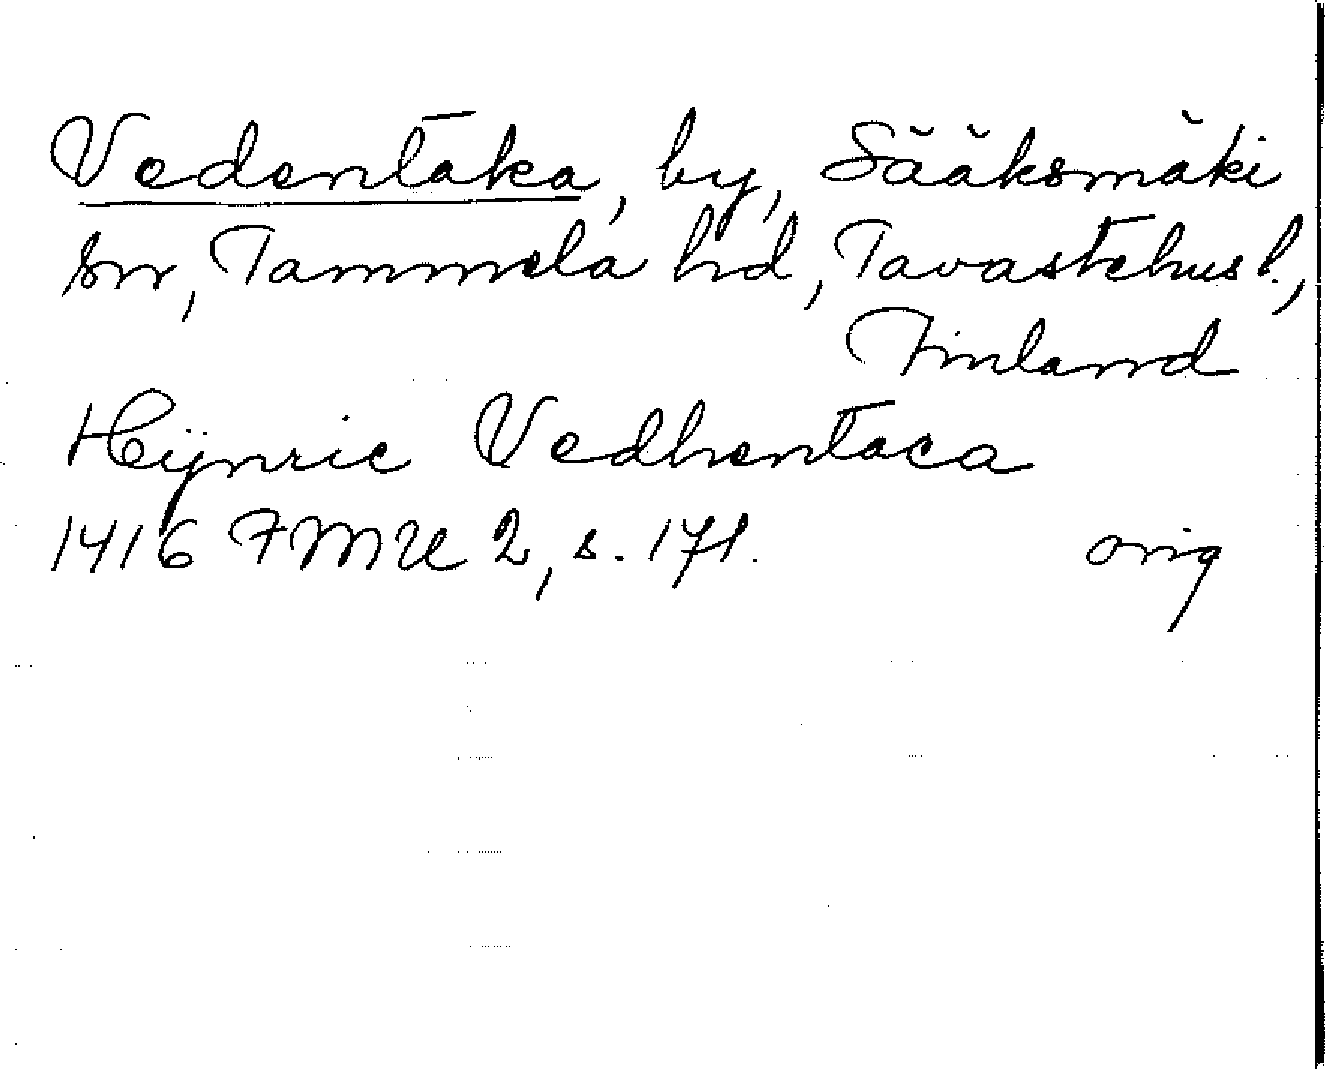 Vedentaka, by, Sääksmäki
sn, Tammela hd, Tavastehus l.,
Finland
Heÿnric Vedhentaca
1416 FMU 2, s. 171. orig